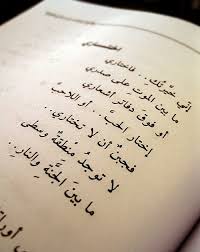 اختاري
إنّي خيّرتُكِ.. فاختاري
ما بينَ الموتِ على صدري
أو فوقَ دفاترِ أشعاري
إختاري الحبَّ.. أو اللاحبَّ
فجبنٌ أن لا تختاري..
لا توجدُ منطقةٌ وسطى
ما بينَ الجنّةِ والنارِ..